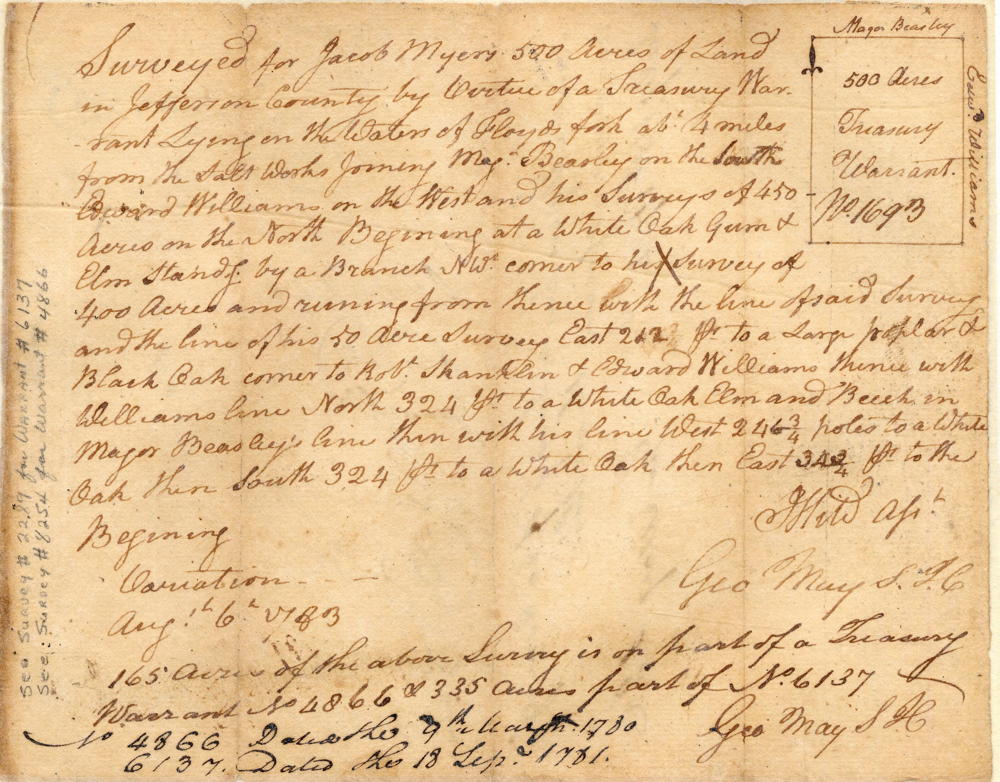 Surveyed for Jacob Myers 500 Acres of Land
in Jefferson County by Virtue of a Treasury War-
-rant Lying on the Waters of Floyds fork abt. 4 miles
from the Salt Works Joining Majr. Beasley on the South
Edward Williams on the West and his Surveys of 450
Acres on the North Begining at a White Oak Gum &
Elm Standg. by a Branch N Wt. corner to his Survey of
400 Acres and runing from thence with the line of said Survey
and the line of his 50 Acre Survey East 212 ps. to a Large poplar &
Black Oak corner to Robt. Shanklin & Edward Williams thence with
Williams line North 324 ps. to a White Oak Elm and Beech in
Major Beasley's line then with his line West 246 3/4 poles to a White
Oak then South 324 ps. to a White Oak then East 34 3/4 ps. to the
Begining
Variation - - -
Augt. 6th 1783
Geo May S. J C
165 Acres of the above Survey is on part of a Treasury
Warrant No 4866 & 335 Acres part of No. 6137
Geo May S J C
No 4866 Dated the 9th March 1780
6137. Dated the 18 Sepr. 1781.
Major Beasley
500 Acres
Treasury
Warrant.
No. 1693
Edwd. Williams
See Survey # 2289 for Warrant # 6137
See: Survey # 8254 for Warrant # 4866